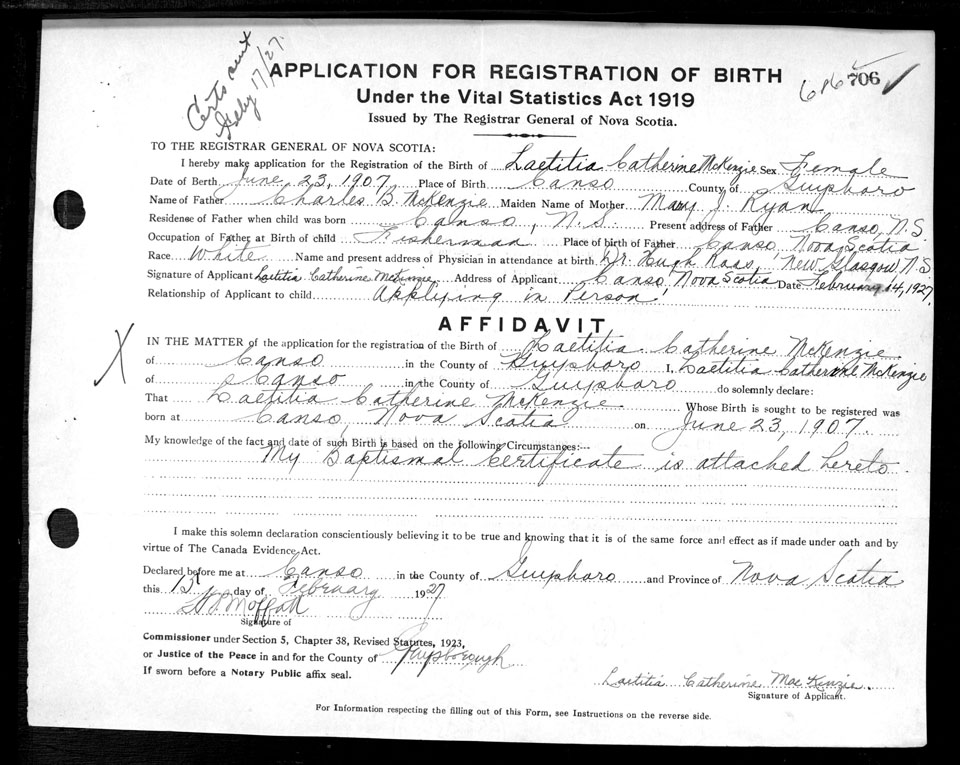 Certs sent
Feby 17/27.
APPLICATION FOR REGISTRATION OF BIRTH
616 706
Under the Vital Statistics Act 1919
Issued by The Registrar General of Nova Scotia.
TO THE REGISTRAR GENERAL OF NOVA SCOTIA:
I hereby make application for the Registration of the Birth of Laetitia Catherine McKenzie Sex Female
Date of Birth June 23, 1907, Place of Birth Canso County of Guysboro
Name of Father Charles McKenzie Maiden Name of Mother Mary J. Ryan
Residense of Father when child was born Canso, N.S. Present address of Father Canso, N.S.
Occupation of Father at Birth of child Fisherman Place of birth of Father Canso, Nova Scotia
Race White Name and present address of Physician in attendance at birth Dr. Hugh Ross, New Glasgow, N.S.
Signature of Applicant Laetitia Catherine McKinzie Address of Applicant Canso, Nova Scotia Date February 14, 1927.
Relationship of Applicant to child Applying in Person
AFFIDAVIT
X
IN THE MATTER of the application for the registration of the Birth of Laetitia Catherine McKenzie
of Canso in the County of Guysboro I, Laetitia Catherine McKenzie
of Canso in the County of Guysboro do solemnly declare:
That Laetitia Catherine McKenzie Whose Birth is sought to be registered was
born at Canso, Nova Scotia on June 23, 1907.
My knowledge of the fact and date of such Birth is based on the following Circumstances:--
My Baptismal Certificate is attached hereto.
I make this solemn declaration conscientiously believing it to be true and knowing that it is of the same force and effect as if made under oath and by
virtue of The Canada Evidence Act.
Declared before me at Canso in the County of Guysboro and Province of Nova Scotia
this 15 day of February 1927
Moffatt
Signature of
Commissioner under Section 5, Chapter 38, Revised Statutes, 1923,
or Justice of the Peace in and for the County of Guysborough
If sworn before a Notary Public affix seal.
Laetitia Catherine MacKinzie.
Signature of Applicant.
For Information respecting the filling out of this Form, see Instructions on the reverse side.